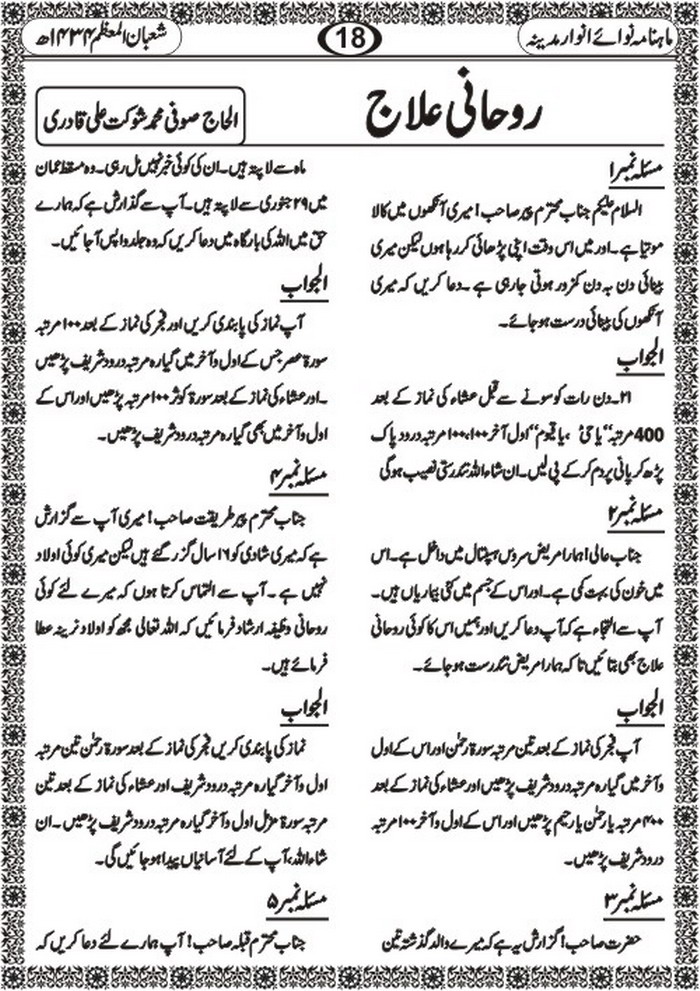 ماہنامہ نوائے انوار مدینہ
18
شعبان المعظم ۱۴۳۴ھ
روحانی علاج
الحاج صوفی محمد شوکت علی قادری
مسئلہ نمبر ۱
السلام علیکم جناب محترم پیر صاحب! میری آنکھوں میں کالا
موتیا ہے۔ اور میں اس وقت اپنی پڑھائی کر رہا ہوں لیکن میری
بینائی دن بہ دن کمزور ہوتی جا رہی ہے۔ دعا کریں کہ میری
آنکھوں کی بینائی درست ہو جائے۔
الجواب
۲۱۔ دن رات کو سونے سے قبل عشاء کی نماز کے بعد
400 مرتبہ "یا حیُّ ، یا قیوم" اول آخر ۱۰۰،۱۰۰ مرتبہ درود پاک
پڑھ کر پانی پر دم کر کے پی لیں۔ ان شاء اللہ تندرستی نصیب ہو گی
مسئلہ نمبر ۲
جناب عالی! ہمارا مریض سروس ہسپتال میں داخل ہے۔ اس
میں خون کی بہت کمی ہے۔ اور اس کے جسم میں کئی بیماریاں ہیں۔
آپ سے التجاء ہے کہ آپ دعا کریں اور ہمیں اس کا کوئی روحانی
علاج بھی بتائیں تاکہ ہمارا مریض تندرست ہو جائے۔
الجواب
آپ فجر کی نماز کے بعد تین مرتبہ سورۃ رحمٰن اور اس کے اول
و آخر میں گیارہ مرتبہ درود شریف پڑھیں اور عشاء کی نماز کے بعد
۴۰۰ مرتبہ یا رحمٰن یا رحیم پڑھیں اور اس کے اول و آخر ۱۰۰ مرتبہ
درود شریف پڑھیں۔
مسئلہ نمبر ۳
حضرت صاحب! گزارش یہ ہے کہ میرے والد گذشتہ تین
ماہ سے لا پتہ ہیں۔ ان کی کوئی خبر نہیں مل رہی۔ وہ مسقط عمان
میں ۲۹ جنوری سے لا پتہ ہیں۔ آپ سے گذارش ہے کہ ہمارے
حق میں اللہ کی بارگاہ میں دعا کریں کہ وہ جلد واپس آ جائیں۔
الجواب
آپ نماز کی پابندی کریں اور فجر کی نماز کے بعد ۱۰۰ مرتبہ
سورۃ عصر جس کے اول و آخر میں گیارہ مرتبہ درود شریف پڑھیں
۔ اور عشاء کی نماز کے بعد سورۃ کوثر ۱۰۰ مرتبہ پڑھیں اور اس کے
اول و آخر میں بھی گیارہ مرتبہ درود شریف پڑھیں۔
مسئلہ نمبر ۴
جناب محترم پیر طریقت صاحب! میری آپ سے گزارش
ہے کہ میری شادی کو ۱۶ سال گزر گئے ہیں لیکن میری کوئی اولاد
نہیں ہے۔ آپ سے التماس کرتا ہوں کہ میرے لئے کوئی
روحانی وظیفہ ارشاد فرمائیں کہ اللہ تعالیٰ مجھ کو اولاد نرینہ عطا
فرمائے ہیں۔
الجواب
نماز کی پابندی کریں فجر کی نماز کے بعد سورۃ رحمٰن تین مرتبہ
اول و آخر گیارہ مرتبہ درود شریف اور عشاء کی نماز کے بعد تین
مرتبہ سورۃ مزمل اول و آخر گیارہ مرتبہ درود شریف پڑھیں۔ ان
شاء اللہ، آپ کے لئے آسانیاں پیدا ہو جائیں گی۔
مسئلہ نمبر ۵
جناب محترم قبلہ صاحب! آپ ہمارے لئے دعا کریں کہ